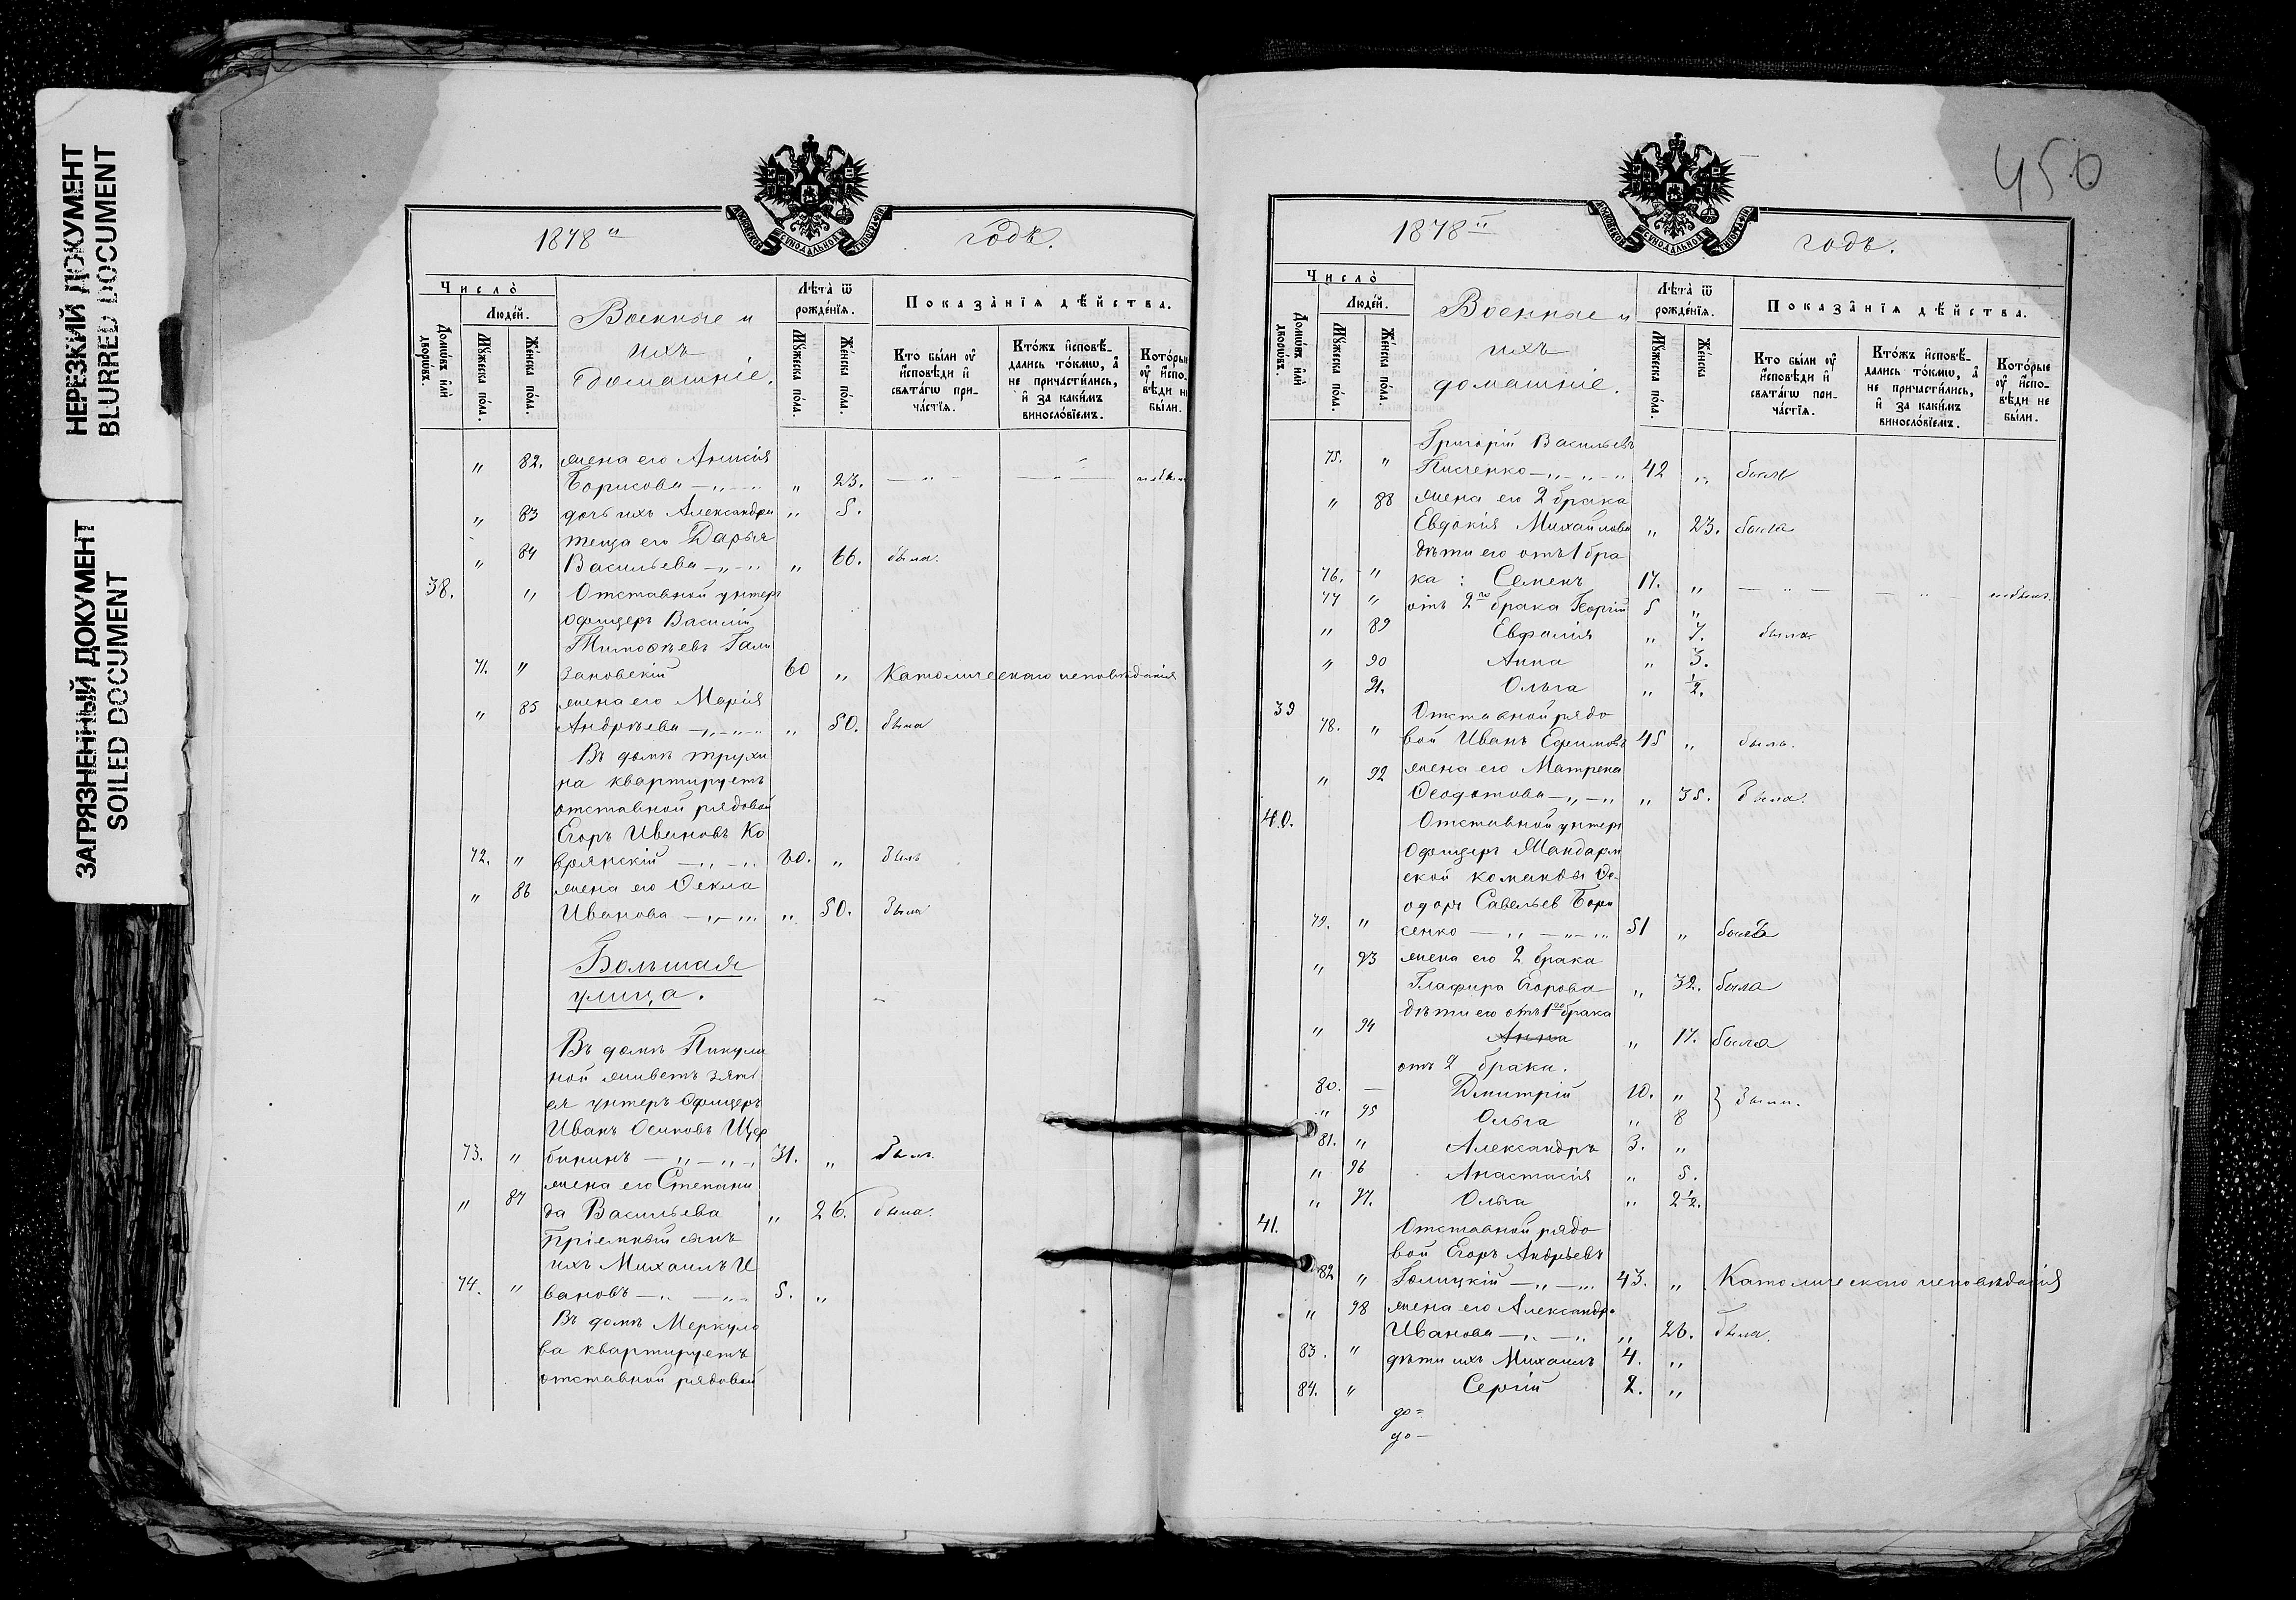 НЕРЕЗКИЙ ДОКУМЕНТ
BLURRED DOCUMENT
ЗАГРЯЗНЕННЫЙ ДОКУМЕНТ
SOILED DOCUMENT
МОСКОВСКОЙ СУНОДАЛЬНОЙ ТИПОГРАФІИ
1878 годъ.
Число̀
Людéй.
Домѡ́въ и҆лѝ дворѡ́въ.
Мꙋ́жеска по́ла.
Же́нска по́ла.
Военные и
ихъ
домашніе.
Лѣ́та ѿ рожде́нїѧ.
Мꙋ́жеска по́ла.
Же́нска по́ла.
Показа̑нїѧ дѣ́йства.
Кто бы́ли ᲂу҆ и҆сповѣ́ди и҆ свѧта́гѡ прича́стїѧ.
Кто́жъ и҆сповѣ́дались то́кмѡ, а҆ не причасти́лись, и҆ за каки́мъ винослѡ́вїемъ.
Кото́рые ᲂу҆ и҆сповѣ́ди не бы́ли.
„ 82. жена его Анисія
Борисова „ 23.
„ 83 дочь ихъ Александра „ 5.
теща его Дарья
„ 84 Васильева „ 66. была.
38. „ Отставной унтеръ
офицеръ Василій
Тимоѳѣевъ Гали
71. „ зановскій 60 „ Католическаго исповѣданія
„ 85 жена его Марія
Андрѣева „ 50. была
Въ домѣ Трухи
на квартируетъ
отставной рядовой
Егоръ Ивановъ Ко
72. „ врянскій 60. „ былъ
„ 86 жена его Ѳекла
Иванова „ 50. была
Большая
улица.
Въ домѣ Пикули
ной живетъ зять
ея унтеръ офицеръ
Иванъ Осиповъ Щер
73. „ бининъ 31. „ былъ.
жена его Степани
„ 87 да Васильева „ 26. была.
Пріемный сынъ
ихъ Михаилъ И
74. „ вановъ 5. „
Въ домѣ Меркуло
ва квартируетъ
отставной рядовой
450
МОСКОВСКОЙ СУНОДАЛЬНОЙ ТИПОГРАФІИ
1878 годъ.
Число̀
Людéй.
Домѡ́въ и҆лѝ дворѡ́въ.
Мꙋ́жеска по́ла.
Же́нска по́ла.
Военные и
ихъ
домашніе.
Лѣ́та ѿ рожде́нїѧ.
Мꙋ́жеска по́ла.
Же́нска
Показа̑нїѧ дѣ́йства.
Кто бы́ли ᲂу҆ и҆сповѣ́ди и҆ свѧта́гѡ прича́стїѧ.
Кто́жъ и҆сповѣ́дались то́кмѡ, а҆ не причасти́лись, и҆ за каки́мъ винослѡ́вїемъ.
Кото́рые ᲂу҆ и҆сповѣ́ди не бы́ли.
Григорій Васильевъ
75. „ Писченко 42 „ былъ
„ 88 жена его 2 брака
Евдокія Михайлова „ 23. была
дѣти его отъ 1 бра
76. „ ка: Семенъ 17. „ не былъ.
77 „ отъ 2го брака Георгій 5 „
„ 89 Евфалія „ 7. была
„ 90 Анна „ 3.
91. Ольга „ ½.
39 Отставной рядо
78. „ вой Иванъ Ефимовъ 45 „ былъ.
„ 92 жена его Матрена
Ѳеодотова „ 35. была.
40. Отставной унтеръ
офицеръ Жандарм
ской команды Ѳе
одоръ Савельев Бори
79. „ сенко 51 „ былъ
„ 93 жена его 2 брака
Глафира Егорова „ 32. была
дѣти его отъ 1го брака
„ 94 Анна „ 17. была
отъ 2 брака.
80. — Дмитрій 10. „ были.
„ 95 Ольга „ 8
81. „ Александръ 3. „
„ 96 Анастасія „ 5.
„ 97. Ольга „ 2½.
41. Отставной рядо
вой Егоръ Андрѣевъ
82 „ Голицкій 43. „ Католическаго исповѣданія
„ 98 жена его Александра
Иванова „ 26. была.
83. „ дѣти ихъ Михаилъ 4. „
84. „ Сергій 2. „
до=
до—